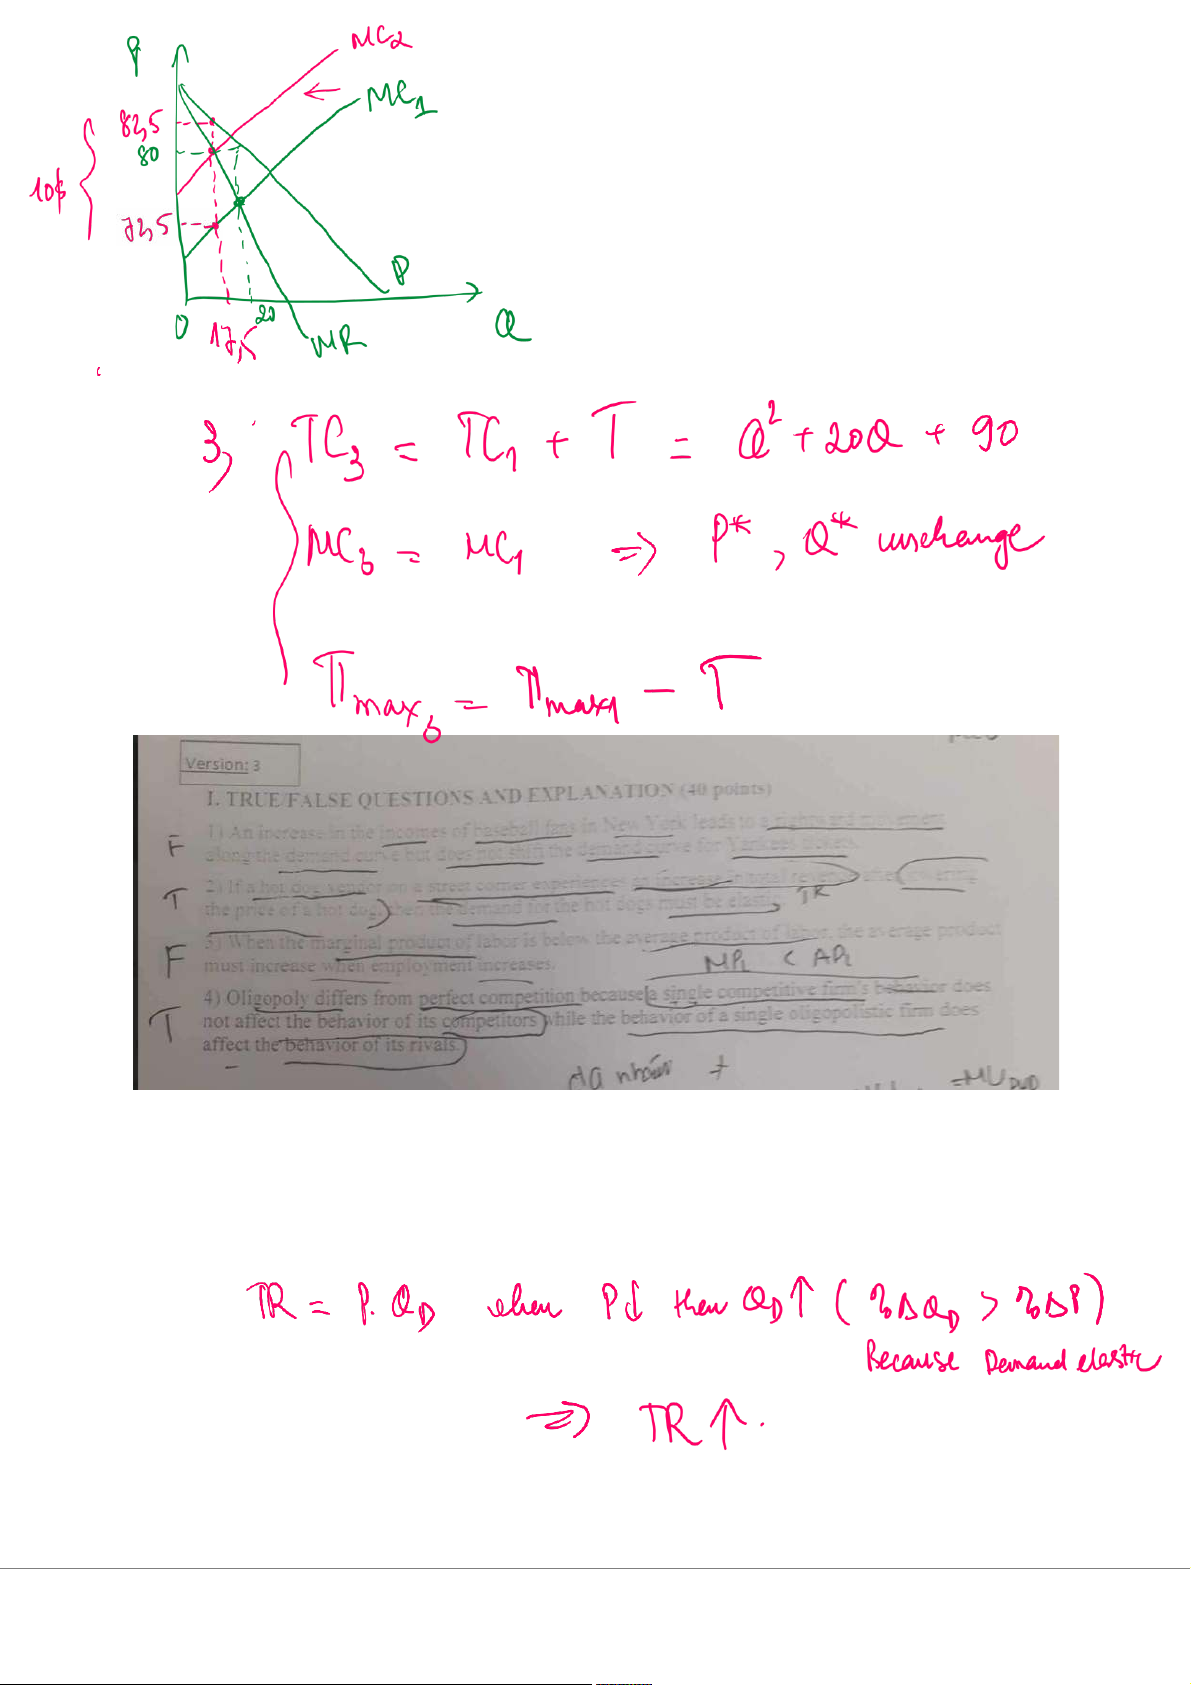 P
MC2
MC1
82,5
80
10$
72,5
P
0
17,5
20
MR
Q
3, TC3 = TC1 + T = Q² + 20Q + 90
MC3 = MC1 => P*, Q* unchange
πmax3 = πmax1 − T
Version: 3
I. TRUE/FALSE QUESTIONS AND EXPLANATION (40 points)
F 1) An increase in the incomes of baseball fans in New York leads to a rightward movement
along the demand curve but does not shift the demand curve for Yankees tickets.
T 2) If a hot dog vendor on a street corner experiences an increase in total revenue after lowering
the price of a hot dog, then the demand for the hot dogs must be elastic. TR
F 3) When the marginal product of labor is below the average product of labor, the average product
must increase when employment increases. MPL < APL
T 4) Oligopoly differs from perfect competition because a single competitive firm's behavior does
not affect the behavior of its competitors while the behavior of a single oligopolistic firm does
affect the behavior of its rivals.
=MU
TR = P. QD when P↓ then QD↑ ( %ΔQD > %ΔP)
Because Demand elastic
=> TR↑.